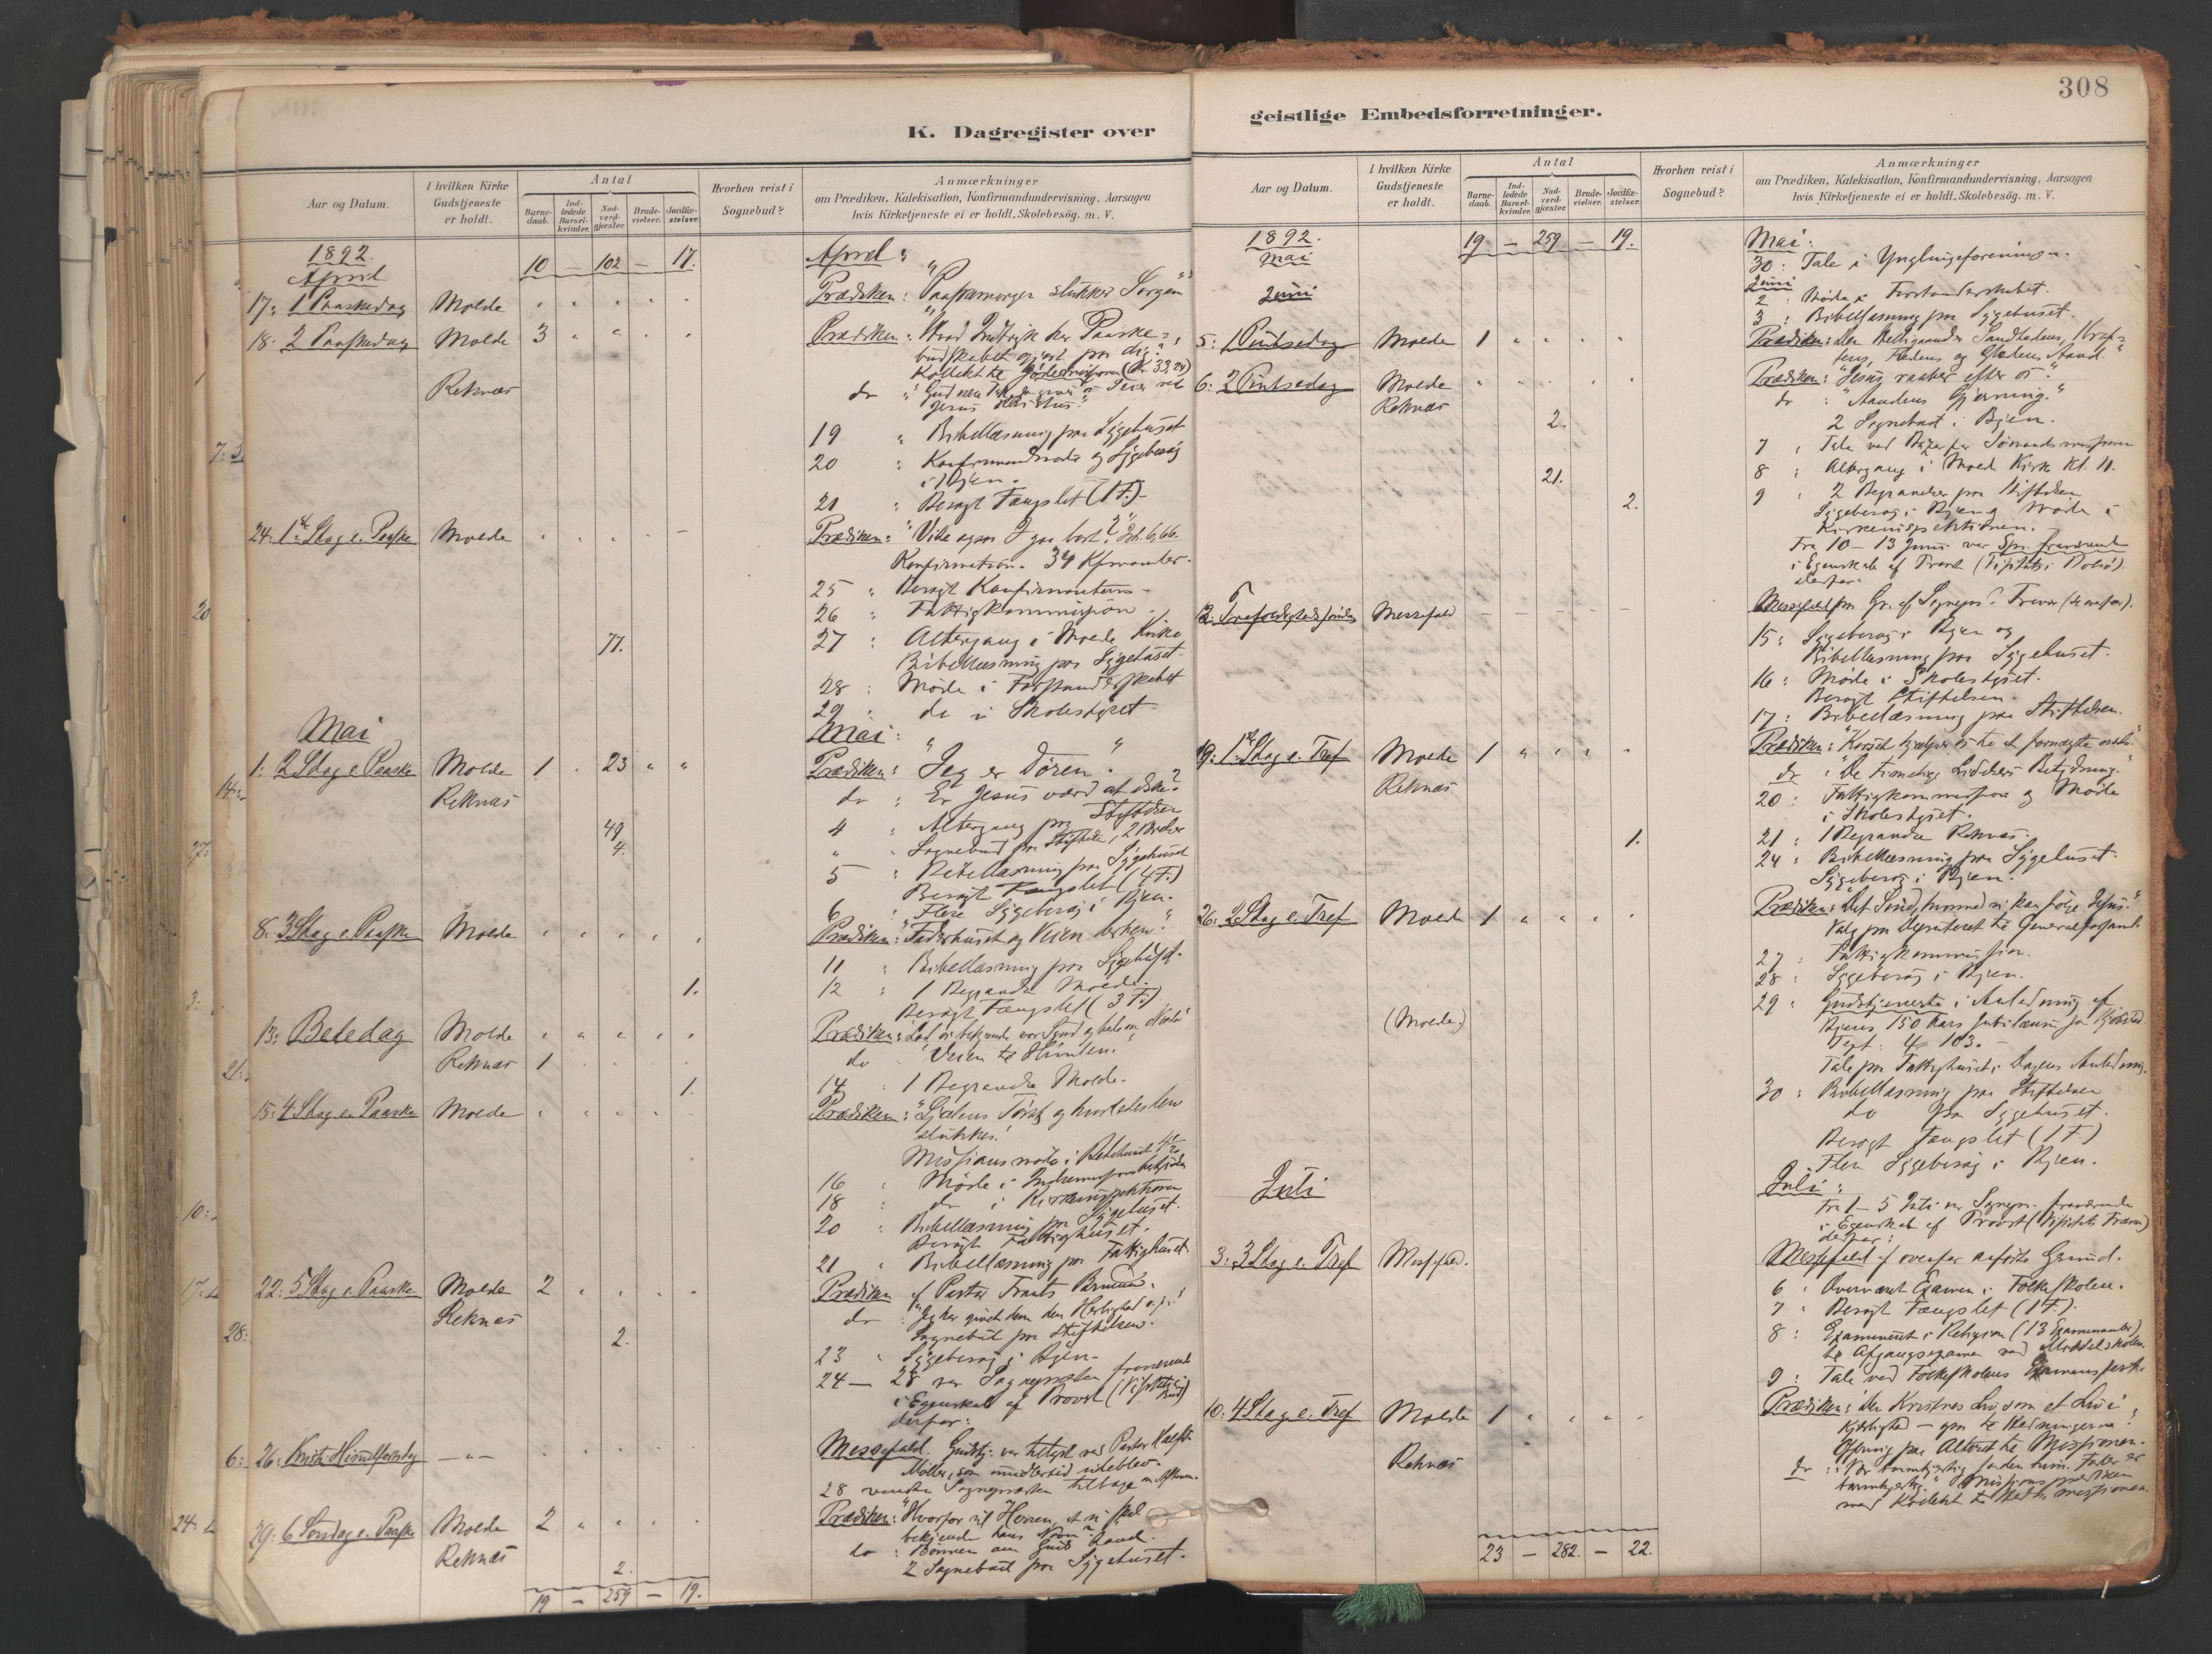 K. Dagregister over
Aar og Datum.
I hvilken Kirke Gudstjeneste er holdt.
Antal
Barne-daab.
Ind-ledede Barsel-kvinder.
Nad-verd-gjæster.
Brude-vielser.
Jordfæ-stelser.
Hvorhen reist i Sognebud?
Anmærkninger
om Prædiken, Katekisation, Konfirmandundervisning, Aarsagen
hvis Kirketjeneste ei er holdt, Skolebesøg. m. V.
1892. 10 — 102 — 17. April:
April
17: 1 Paaskedag Molde Prædiken: "Paaskemorgen slukker Sorgen"
18: 2 Paaskedag Molde 3 Prædiken: "Hvad Indtryk har Paaske-
budskabet gjort paa dig?"
Reknæs do
Jesus Kristus."
19 " Bibellæsning paa Sygehuset
20 " og Sygebesøg
i Byen.
21 " Besøgt Fængslet (1 F.)
24: 1ste Sdag e. Paaske Molde Prædiken: "Vil ogsaa I gaa bort?" Joh. 6,66.
Konfirmation. 34 Kfmander.
25 " Besøgt Konfirmanterne
26 " Fattigkommission.
77. 27 : Altergang i Molde Kirke
Bibellæsning paa Sygehuset.
28 : Møde i Forstanderskabet
29 : do i Skolestyret
Mai Mai:
1: 2 Sdag e. Paaske Molde 1 23 Prædiken: "Jeg er Døren."
Reknæs do : Er Jesus værd at elske?
49 4 " Altergang paa Stiftelsen
4. " Sognebud paa Stiftelsen, 2
5 " Bibellæsning paa Sygehuset
Besøgt Fængslet (4 F.)
6 : Flere Sygebesøg i Byen.
8: 3 Sdag e. Paaske Molde Prædiken: "Faderhuset og Veien derhen."
11 " Bibellæsning paa Sygehuset.
1. 12 " 1 Begravelse Molde.
Besøgt Fængslet (3 F.)
13: Bededag Molde Prædiken:
Reknæs 1 do "Veien til Himlen."
1. 14 " 1 Begravelse Molde.
15: 4 Sdag e. Paaske Molde Prædiken: "Sjælens Tørst og hvorledes den
slukkes."
Missionsmøde i Bedehuset
16 " Møde i
18 " do i Kirkeinspektionen
20 " Bibellæsning paa Sygehuset.
Besøgt Fattighuset.
21 " Bibellæsning paa Fattighuset.
22: 5 Sdag e. Paaske Molde 2 Prædiken af Pastor
Reknæs do "Jeg har givet dem den Herlighed
2. Sognebud paa Stiftelsen.
23 " Sygebesøg i Byen.
24 — 28 var Sognepresten fraværende
i Egenskab af Provst
derfor:
26: Kristi Himmelfartsdag — " — Messefald. Gudstj. var tillyst ved Pastor
Møller, som imidlertid udeblev.
28 vendte Sognepresten tilbage
29: 6 Søndag e. Paaske Molde 2 Prædiken: "Hvorfor vil Herren, at vi skal
bekjende hans Navn?"
Reknæs do : Bønnen om Guds Aand.
2. 2 Sognebud paa Sygehuset.
19 — 259 — 19.
308
geistlige Embedsforretninger.
Aar og Datum.
I hvilken Kirke Gudstjeneste er holdt.
Antal
Barne-daab.
Ind-ledede Barsel-kvinder.
Nad-verd-gjæster.
Brude-vielser.
Jordfæ-stelser.
Hvorhen reist i Sognebud?
Anmærkninger
om Prædiken, Katekisation, Konfirmandundervisning, Aarsagen
hvis Kirketjeneste ei er holdt, Skolebesøg. m. V.
1892. 19 — 259 — 19. Mai:
Mai 30: Tale i Ynglingeforeningen.
Juni Juni
2 : Møde i Forstanderskabet.
3 : Bibellæsning paa Sygehuset.
5: 1 Pintsedag Molde 1 Prædiken: Den Helligaand er Sandhedens, Kraf-
tens, Fredens og Glædens Aand."
6: 2 Pintsedag Molde Prædiken: "Jesus raaber efter os."
Reknæs do : "Aandens Gjerning."
2. 2 Sognebud i Byen.
7 : Tale ved
21. 8 : Altergang i Molde Kirke Kl. 11.
2. 9 : 2 Begravelser paa Stiftelsen
Sygebesøg i Byen og Møde i
Kirkeinspektionen.
Fra 10 — 13 Juni var Spr. fraværende
i Egenskab af Provst (Visitats i Bolsø)
derfor:
12: Trefoldighedssøndag Messefald Messefald paa Gr. af Sognepr.s Fravær (se ovenfor).
15: Sygebesøg i Byen og
Bibellæsning paa Sygehuset.
16: Møde i Skolestyret.
Besøgt Stiftelsen.
17: Bibellæsning paa Stiftelsen.
19: 1ste Sdag e. Tref Molde 1 Prædiken: "Korset hjælper os til at fornægte os selv."
Reknæs do : "De timelige Lidelsers Betydning."
20: Fattigkommission og Møde
i Skolestyret.
1. 21: 1 Begravelse Reknæs.
24: Bibellæsning paa Sygehuset.
Sygebesøg i Byen.
26: 2 Sdag e. Tref Molde 1 Prædiken: "Det Sind, hvormed vi kan følge Jesus."
Valg paa Deputeret til Generalforsaml.
27: Fattigkommission.
28: Sygebesøg i Byen.
(Molde) 29: Gudstjeneste i Anledning af
Byens 150 Aars Jubilæum som Kjøbsted.
Text: 103.
Tale paa Fattighuset i Dagens Anledning.
30: Bibellæsning paa Stiftelsen
do paa Sygehuset.
Besøgt Fængslet (1 F.)
Flere Sygebesøg i Byen.
Juli Juli:
Fra 1 — 5 Juli var Sognepr. fraværende
i Egenskab af Provst (Visitats Fræna)
derfor:
3: 3 Sdag e. Tref Messefald. Messefald af ovenfor anførte Grund.
6 : Overværet Examen i Folkeskolen.
7 : Besøgt Fængslet (1 F.).
8 : Examineret i Religion (13 Examinander)
til Afgangsexamen ved Middelskolen.
9 : Tale ved Folkeskolens Examensfest.
10: 4 Sdag e. Tref Molde 1 Prædiken: "Den Kristnes Liv, som et Liv i
Kjærlighed
Ofring paa Alteret til Missionen.
Reknæs do : "Vær barmhjertig som eders himm. Fader er
barmhjertig." Missionsprædiken
med Kollekt til missionen.
23 — 282. — 22.